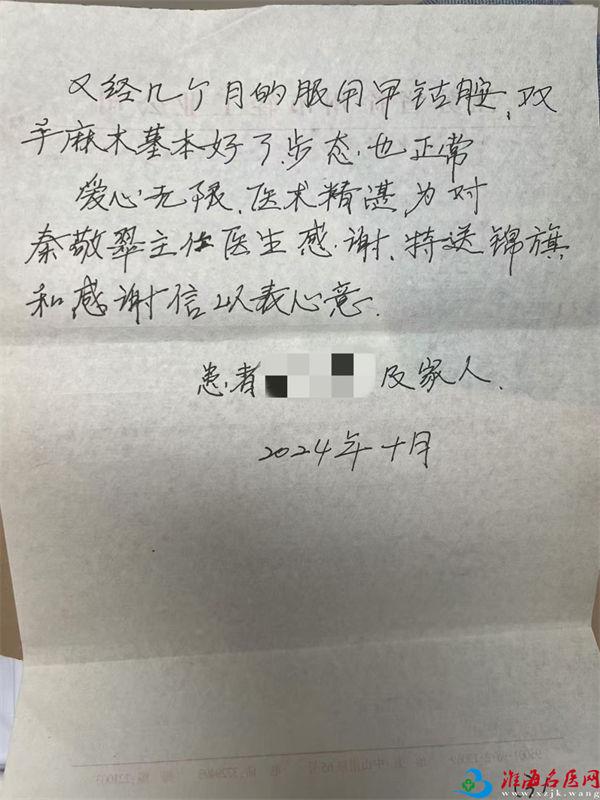 又经几个月的服用甲钴胺，双
手麻木基本好了，步态也正常
爱心无限，医术精湛，为对
秦敬翠主任医生感谢，特送锦旗
和感谢信以表心意．
患者 及家人．
2024年十月
淮海名医网
www.xzjk.wang